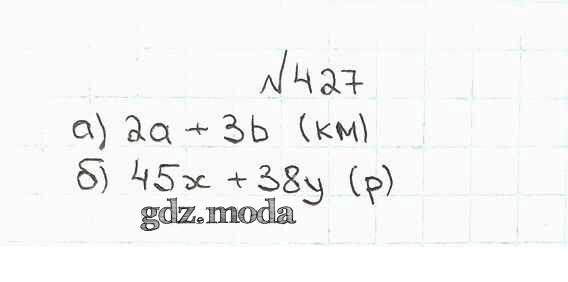 №427
а) 2a + 3b (км)
б) 45x + 38y (р)
gdz.moda